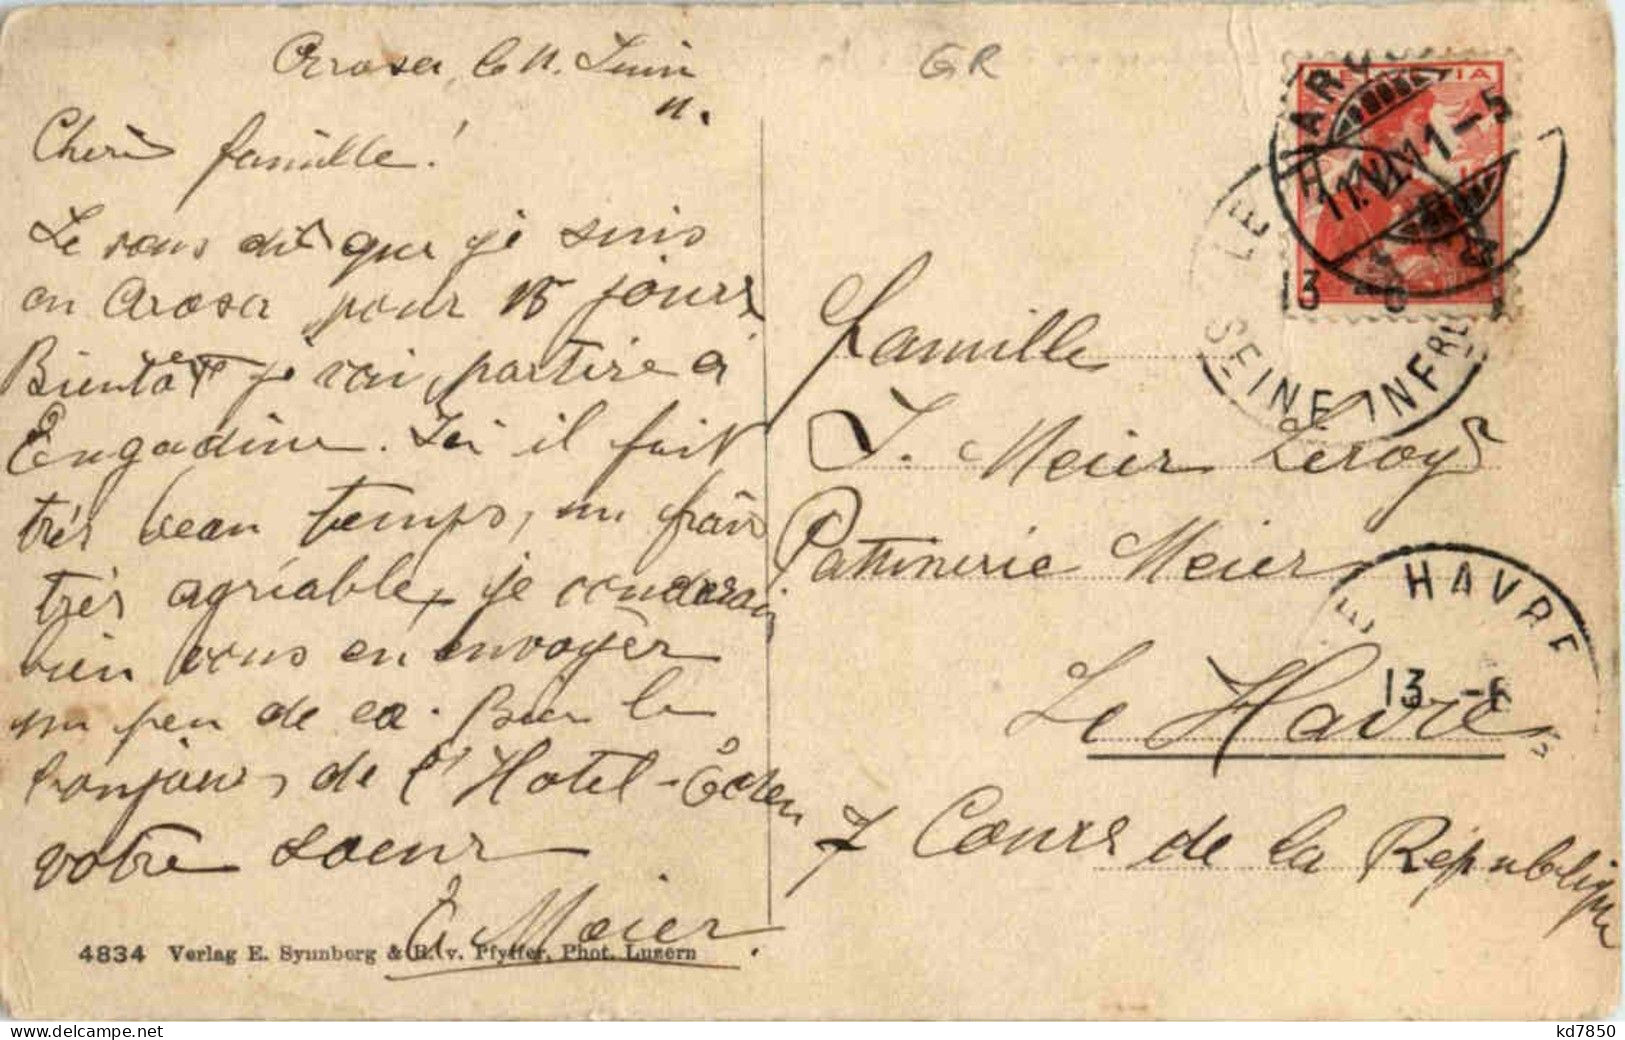 Arosa, le 11. Juin
11.
GR
Cheris famille!
Je vous dit que je suis
en Arosa pour 15 jours
Bientôt je vai partire a
Engadine. Ici il fait
très beau temps, un
très agriable, je
bien vous en envoyer
un peu de ca. Bien le
bonjour, de l'Hotel-Eden
votre soeur
E. Meier.
4834 Verlag E. Synnberg & R. v. Pfyffer, Phot. Luzern
HELVETIA
11.VI.11-5
LE HAVRE
13 -6
SEINE INFRE
Famille
J. Meier Leroy
Pattinerie Meier
Le Havre
7 Cours de la République
LE HAVRE
13 -6
kd7850